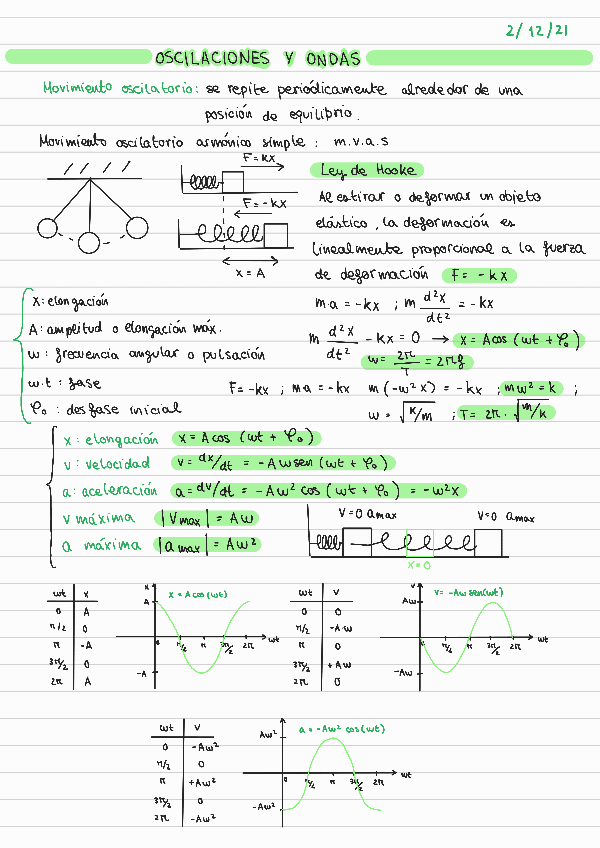 2/12/21
OSCILACIONES Y ONDAS
Movimiento oscilatorio: se repite periódicamente alrededor de una
posición de equilibrio.
Movimiento oscilatorio armónico simple: m.v.a.s
F=kx
F=-kx
x=A
Ley de Hooke
Al estirar o deformar un objeto
elástico, la deformación es
linealmente proporcional a la fuerza
de deformación F = -kx
x: elongación
A: amplitud o elongación máx.
w: frecuencia angular o pulsación
w.t: fase
φ₀: desfase inicial
ma = -kx ; m d²x/dt² = -kx
m d²x/dt² - kx = 0 → x = A cos (wt + φ₀)
w = 2π/T = 2πf
F=-kx ; ma = -kx m(-w²x) = -kx ; mw² = k ;
w = √k/m ; T = 2π · √m/k
x: elongación x = A cos (wt + φ₀)
v: velocidad v = dx/dt = -Aw sen (wt + φ₀)
a: aceleración a = dv/dt = -Aw² cos (wt + φ₀) = -w²x
v máxima |Vmax| = Aw
a máxima |amax| = Aw²
V=0 amax V=0 amax
x=0
wt x
0 A
π/2 0
π -A
3π/2 0
2π A
x
x = A cos(wt)
A
-A
π/2 π 3π/2 2π wt
wt V
0 0
π/2 -A·w
π 0
3π/2 +Aw
2π 0
V
v = -Aw sen(wt)
Aw
-Aw
0 π/2 π 3π/2 2π wt
wt V
0 -Aw²
π/2 0
π +Aw²
3π/2 0
2π -Aw²
a = -Aw² cos(wt)
Aw²
-Aw²
0 π/2 π 3π/2 2π wt